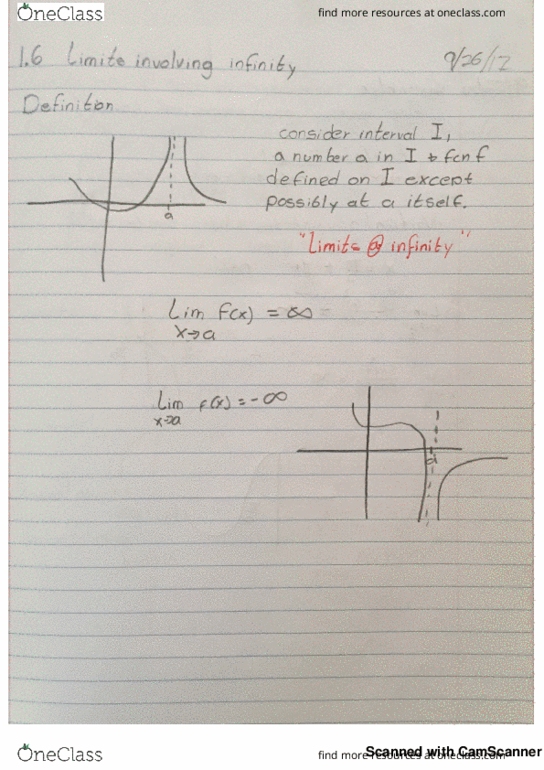 OneClass
find more resources at oneclass.com
1.6 Limits involving infinity
9/26/12
Definition
consider interval I,
a number a in I & fcn f
defined on I except
possibly at a itself.
a
"Limits @ infinity"
Lim f(x) = ∞
x→a
Lim f(x) = -∞
x→a
a
OneClass
find more resources at oneclass.com
Scanned with CamScanner